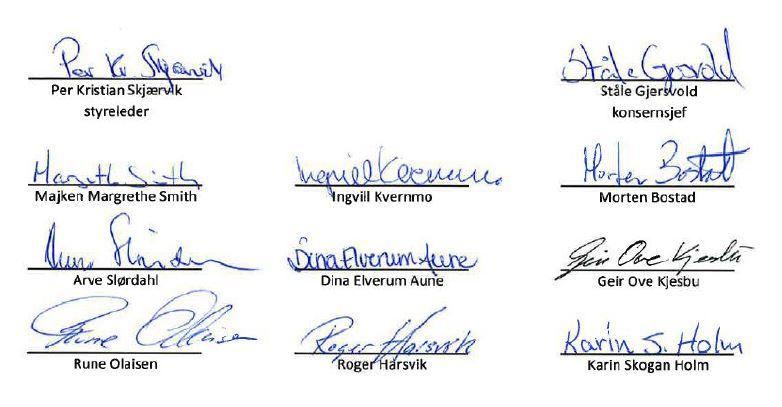 Per Kr Skjærvik Ståle Gjersvold
Per Kristian Skjærvik Ståle Gjersvold
styreleder konsernsjef
Margrethe Smith Ingvill Kvernmo Morten Bostad
Majken Margrethe Smith Ingvill Kvernmo Morten Bostad
Dina Elverum Aune Geir Ove Kjesbu
Arve Slørdahl Dina Elverum Aune Geir Ove Kjesbu
Rune Olaisen Roger Harsvik Karin S. Holm
Rune Olaisen Roger Harsvik Karin Skogan Holm